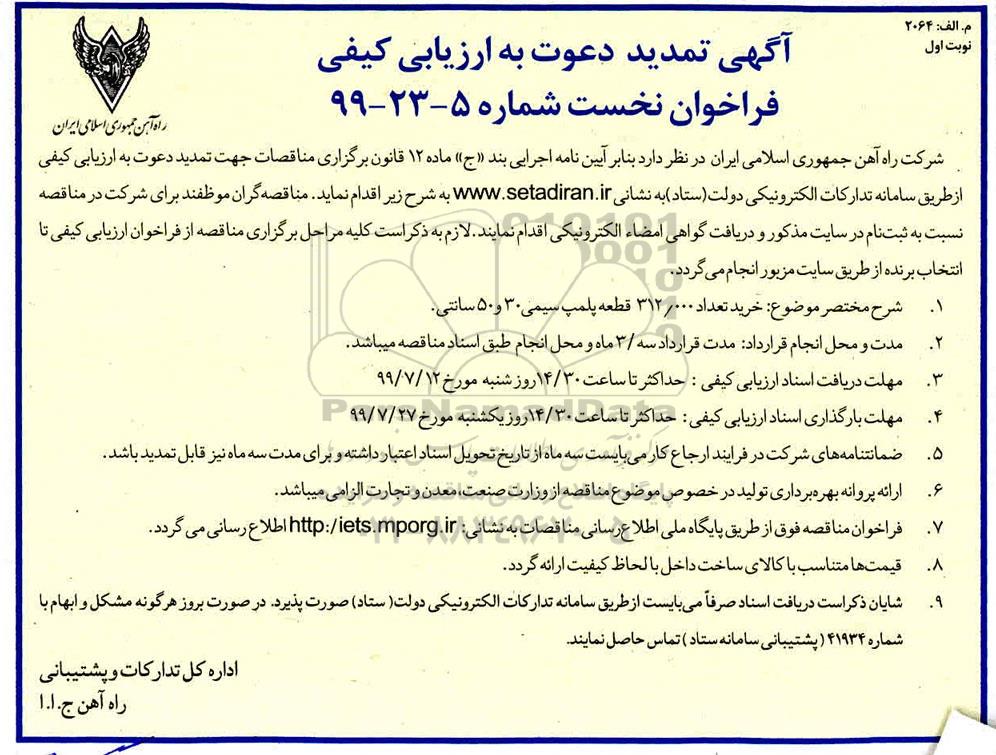 م. الف: ۲۰۶۴
نوبت اول
راه‌آهن جمهوری اسلامی ایران
آگهی تمدید دعوت به ارزیابی کیفی
فراخوان نخست شماره ۵-۲۳-۹۹
شرکت راه آهن جمهوری اسلامی ایران در نظر دارد بنابر آیین نامه اجرایی بند «ج» ماده ۱۲ قانون برگزاری مناقصات جهت تمدید دعوت به ارزیابی کیفی
ازطریق سامانه تدارکات الکترونیکی دولت(ستاد)به نشانی www.setadiran.ir به شرح زیر اقدام نماید. مناقصه‌گران موظفند برای شرکت در مناقصه
نسبت به ثبت‌نام در سایت مذکور و دریافت گواهی امضاء الکترونیکی اقدام نمایند.لازم به ذکر است کلیه مراحل برگزاری مناقصه از فراخوان ارزیابی کیفی تا
انتخاب برنده از طریق سایت مزبور انجام می‌گردد.
۱. شرح مختصر موضوع: خرید تعداد ۳۱۲٫۰۰۰ قطعه پلمپ سیمی ۳۰ و ۵۰ سانتی.
۲. مدت و محل انجام قرارداد: مدت قرارداد سه /۳ ماه و محل انجام طبق اسناد مناقصه میباشد.
۳. مهلت دریافت اسناد ارزیابی کیفی : حداکثر تا ساعت ۱۴/۳۰ روز شنبه مورخ ۹۹/۷/۱۲
۴. مهلت بارگذاری اسناد ارزیابی کیفی : حداکثر تا ساعت ۱۴/۳۰ روز یکشنبه مورخ ۹۹/۷/۲۷
۵. ضمانتنامه‌های شرکت در فرایند ارجاع کار می‌بایست سه ماه از تاریخ تحویل اسناد اعتبار داشته و برای مدت سه ماه نیز قابل تمدید باشد.
۶. ارائه پروانه بهره‌برداری تولید در خصوص موضوع مناقصه از وزارت صنعت، معدن و تجارت الزامی میباشد.
۷. فراخوان مناقصه فوق از طریق پایگاه ملی اطلاع رسانی مناقصات به نشانی: http:/iets.mporg.ir اطلاع رسانی می گردد.
۸. قیمت‌ها متناسب با کالای ساخت داخل با لحاظ کیفیت ارائه گردد.
۹. شایان ذکر است دریافت اسناد صرفاً می‌بایست ازطریق سامانه تدارکات الکترونیکی دولت( ستاد) صورت پذیرد. در صورت بروز هرگونه مشکل و ابهام با
شماره ۴۱۹۳۴ ( پشتیبانی سامانه ستاد ) تماس حاصل نمایند.
اداره کل تدارکات و پشتیبانی
راه آهن ج.ا.ا
ParsNamadData
۰۲۱-۸۸۳۴۹۶۷۰-۵